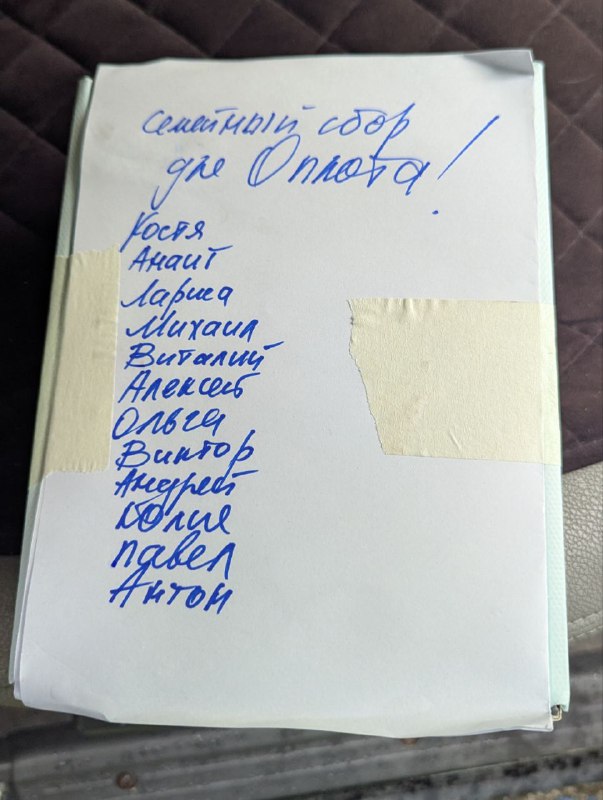 семейный сбор
для Оплота!
Костя
Анаит
Лариса
Михаил
Виталий
Алексей
Ольга
Виктор
Андрей
Юлия
Павел
Антон